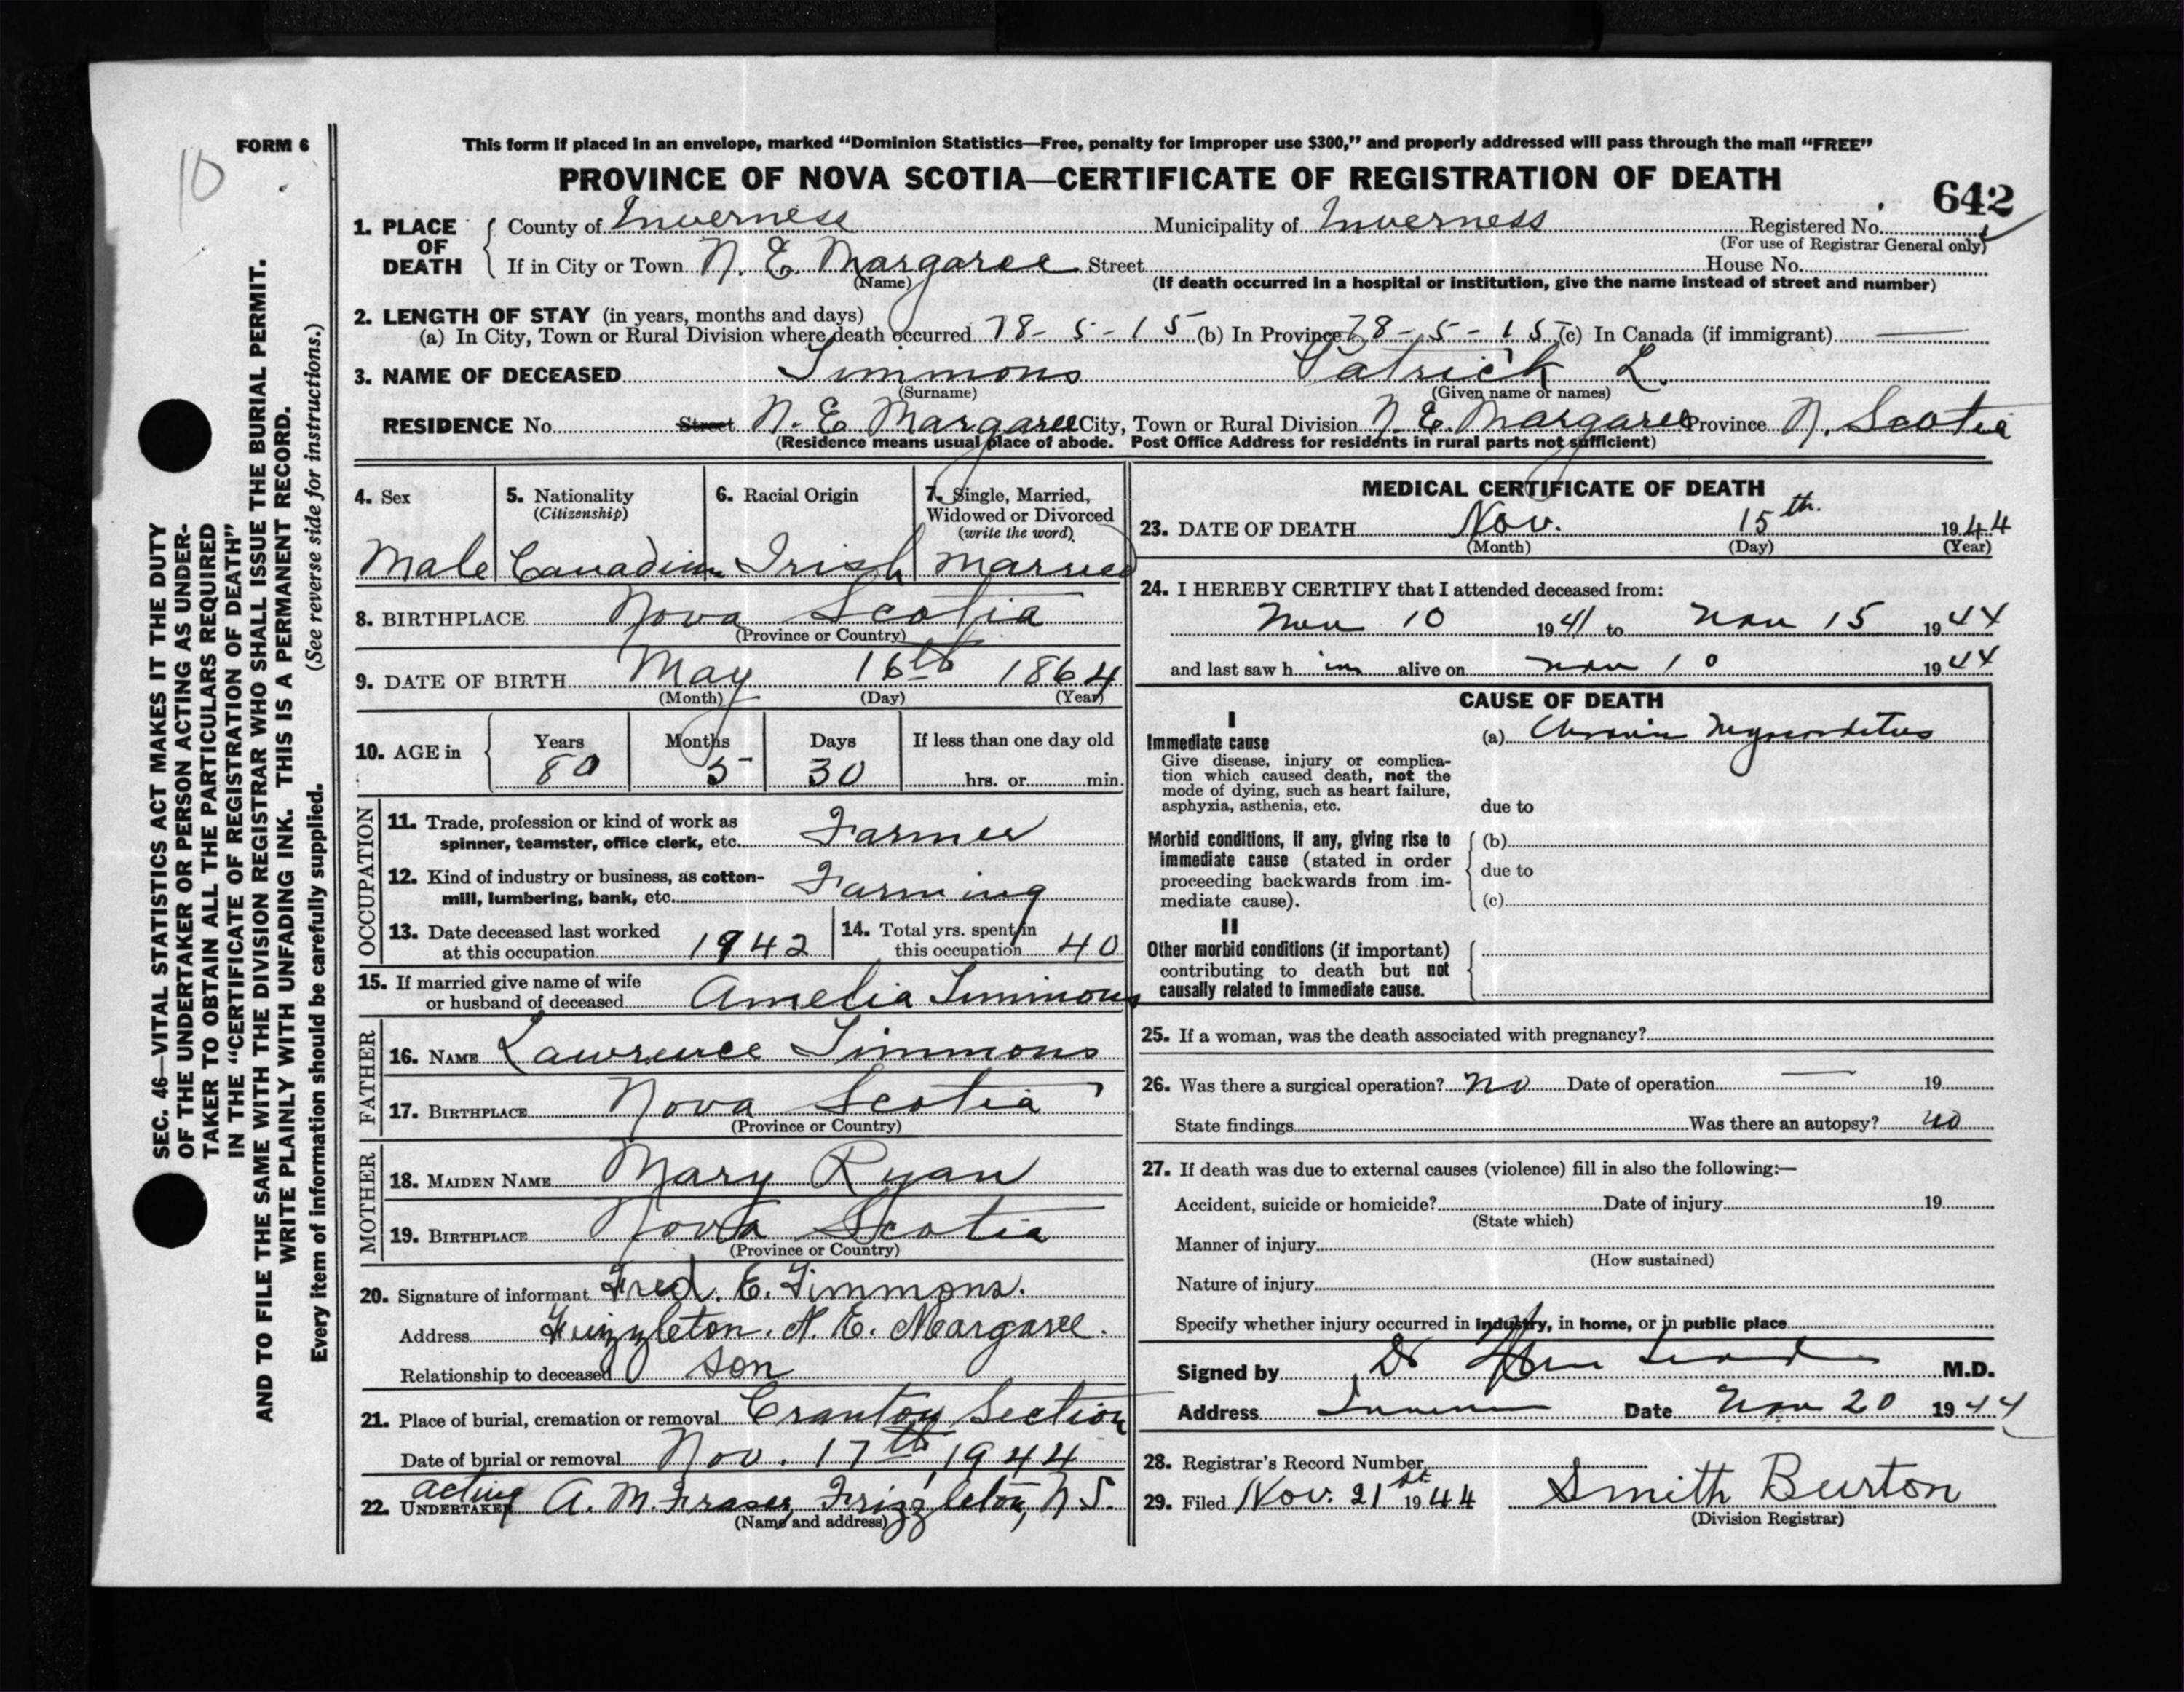 FORM 6
10
This form if placed in an envelope, marked “Dominion Statistics—Free, penalty for improper use $300,” and properly addressed will pass through the mail “FREE”
PROVINCE OF NOVA SCOTIA—CERTIFICATE OF REGISTRATION OF DEATH
642
1. PLACE OF DEATH
County of Inverness Municipality of Inverness Registered No.
(For use of Registrar General only)
If in City or Town N. E. Margaree Street House No.
(Name) (If death occurred in a hospital or institution, give the name instead of street and number)
2. LENGTH OF STAY (in years, months and days)
(a) In City, Town or Rural Division where death occurred 78-5-15 (b) In Province 78-5-15 (c) In Canada (if immigrant) —
3. NAME OF DECEASED Timmons Patrick L.
(Surname) (Given name or names)
RESIDENCE No. Street N. E. Margaree City, Town or Rural Division N. E. Margaree Province N. Scotia
(Residence means usual place of abode. Post Office Address for residents in rural parts not sufficient)
4. Sex
Male
5. Nationality
(Citizenship)
Canadian
6. Racial Origin
Irish
7. Single, Married,
Widowed or Divorced
(write the word)
Married
8. BIRTHPLACE Nova Scotia
(Province or Country)
9. DATE OF BIRTH May 16th 1864
(Month) (Day) (Year)
10. AGE in
Years Months Days If less than one day old
80 5 30 hrs. or min.
OCCUPATION
11. Trade, profession or kind of work as
spinner, teamster, office clerk, etc. Farmer
12. Kind of industry or business, as cotton-
mill, lumbering, bank, etc. Farming
13. Date deceased last worked
at this occupation 1942
14. Total yrs. spent in
this occupation 40
15. If married give name of wife
or husband of deceased Amelia Timmons
FATHER
16. NAME Lawrence Timmons
17. BIRTHPLACE Nova Scotia
(Province or Country)
MOTHER
18. MAIDEN NAME Mary Ryan
19. BIRTHPLACE Nova Scotia
(Province or Country)
20. Signature of informant Fred. E. Timmons.
Address Frizzleton. N. E. Margaree.
Relationship to deceased son
21. Place of burial, cremation or removal Cranton Section
Date of burial or removal Nov. 17th, 1944
acting
22. UNDERTAKER A. M. Fraser, Frizzleton, N S.
(Name and address)
MEDICAL CERTIFICATE OF DEATH
23. DATE OF DEATH Nov. 15th. 1944
(Month) (Day) (Year)
24. I HEREBY CERTIFY that I attended deceased from:
Nov 10 1941 to Nov 15 1944
and last saw h im alive on Nov 10 1944
CAUSE OF DEATH
I
Immediate cause
Give disease, injury or complica-
tion which caused death, not the
mode of dying, such as heart failure,
asphyxia, asthenia, etc.
(a) Chronic Myocarditis
due to
Morbid conditions, if any, giving rise to
immediate cause (stated in order
proceeding backwards from im-
mediate cause).
(b)
due to
(c)
II
Other morbid conditions (if important)
contributing to death but not
causally related to immediate cause.
25. If a woman, was the death associated with pregnancy?
26. Was there a surgical operation? no Date of operation — 19
State findings Was there an autopsy? no
27. If death was due to external causes (violence) fill in also the following:—
Accident, suicide or homicide? Date of injury 19
(State which)
Manner of injury
(How sustained)
Nature of injury
Specify whether injury occurred in industry, in home, or in public place
Signed by Dr M.D.
Address Date Nov 20 1944
28. Registrar's Record Number
29. Filed Nov. 21st 1944 Smith Burton
(Division Registrar)
SEC. 46—VITAL STATISTICS ACT MAKES IT THE DUTY
OF THE UNDERTAKER OR PERSON ACTING AS UNDER-
TAKER TO OBTAIN ALL THE PARTICULARS REQUIRED
IN THE “CERTIFICATE OF REGISTRATION OF DEATH”
AND TO FILE THE SAME WITH THE DIVISION REGISTRAR WHO SHALL ISSUE THE BURIAL PERMIT.
WRITE PLAINLY WITH UNFADING INK. THIS IS A PERMANENT RECORD.
Every item of information should be carefully supplied. (See reverse side for instructions.)